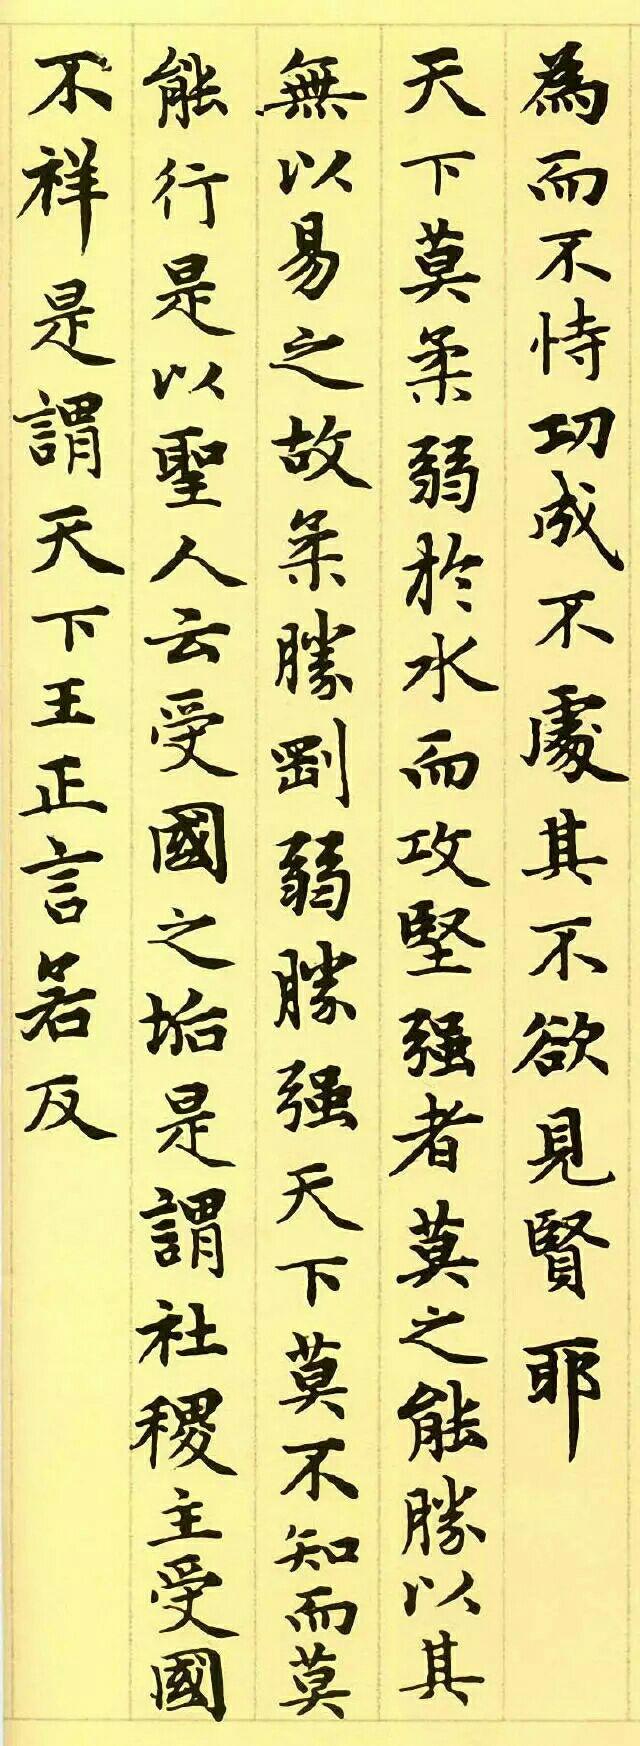 為而不恃功成不處其不欲見賢耶
天下莫柔弱於水而攻堅强者莫之能勝以其
無以易之故柔勝剛弱勝强天下莫不知而莫
能行是以聖人云受國之垢是謂社稷主受國
不祥是謂天下王正言若反